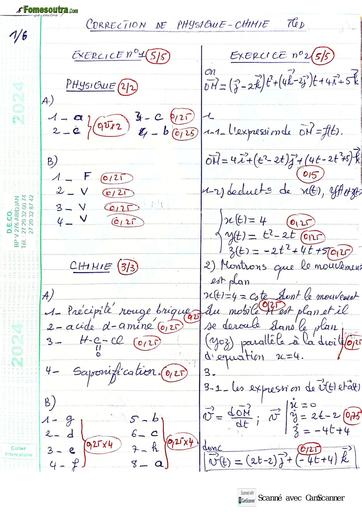 Fomesoutra.com
1/6
CORRECTION DE PHYSIQUE-CHIMIE TleD
EXERCICE n°1 5/5
PHYSIQUE 2/2
A)
1 - a
2 - c
0,25x2
3 - c 0,25
4 - b 0,25
B)
1 - F 0,25
2 - V 0,25
3 - V 0,25
4 - V 0,25
CHIMIE 3/3
A)
1- Précipité rouge brique
2- acide α-aminé 0,25
3- H-C-Cl 0,25
O
4- Saponification 0,25
B)
1 - g
2 - d
3 - e
4 - f
0,25x4
5 - b
6 - c
7 - h
8 - a
0,25x4
EXERCICE n°2 5/5
on
1-
1-1- l'expression de OM = f(t).
0,5
1-2) déduct° de x(t), y(t)
x(t) = 4 0,25
y(t) = t² - 2t 0,25
z(t) = -2t² + 4t + 5 0,25
2) Montrons que le mouvement
est plan
x(t) = 4 = cste dont le mouvement
du mobile M est plan et il
se deroule dans le plan
(yoz) parallèle à la droite
d'equation x = 4.
3.
3-1- les expression de v(t) et a(t)
v = dOM/dt ; v
ẋ = 0
ẏ = 2t - 2
ż = -4t + 4
donc 0,25
v(t) = (2t-2)j + (-4t+4)k
2024
D.E.CO.
BP V 205 ABIDJAN
2024
Scanné avec CamScanner